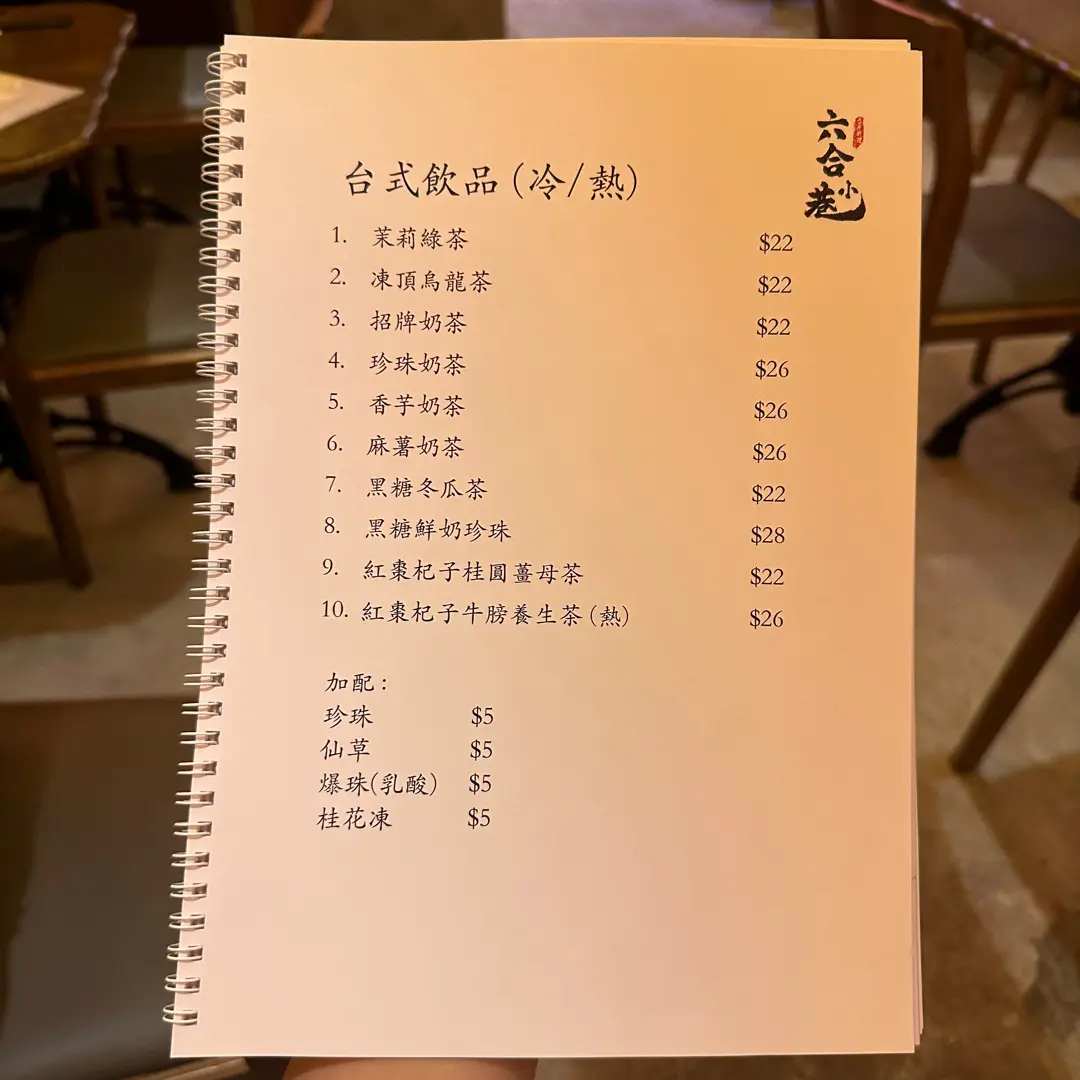 六合
小巷
台式飲品(冷/熱)
1. 茉莉綠茶 $22
2. 凍頂烏龍茶 $22
3. 招牌奶茶 $22
4. 珍珠奶茶 $26
5. 香芋奶茶 $26
6. 麻薯奶茶 $26
7. 黑糖冬瓜茶 $22
8. 黑糖鮮奶珍珠 $28
9. 紅棗杞子桂圓薑母茶 $22
10. 紅棗杞子牛膀養生茶(熱) $26
加配:
珍珠 $5
仙草 $5
爆珠(乳酸) $5
桂花凍 $5